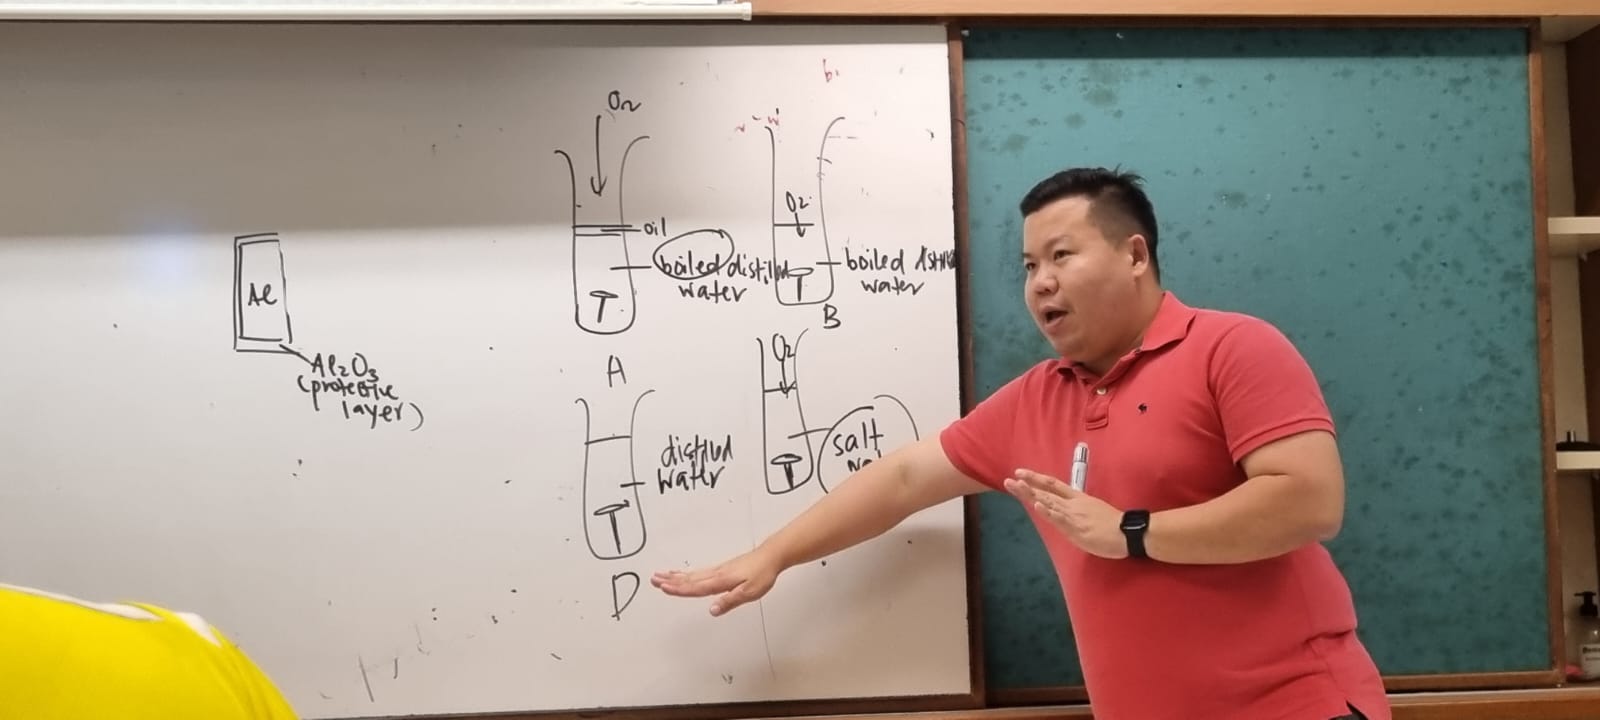 Al
Al2O3
(protective
layer)
O2
oil
boiled distilled
water
A
O2
boiled
water
B
distilled
water
D
O2
salt
b.